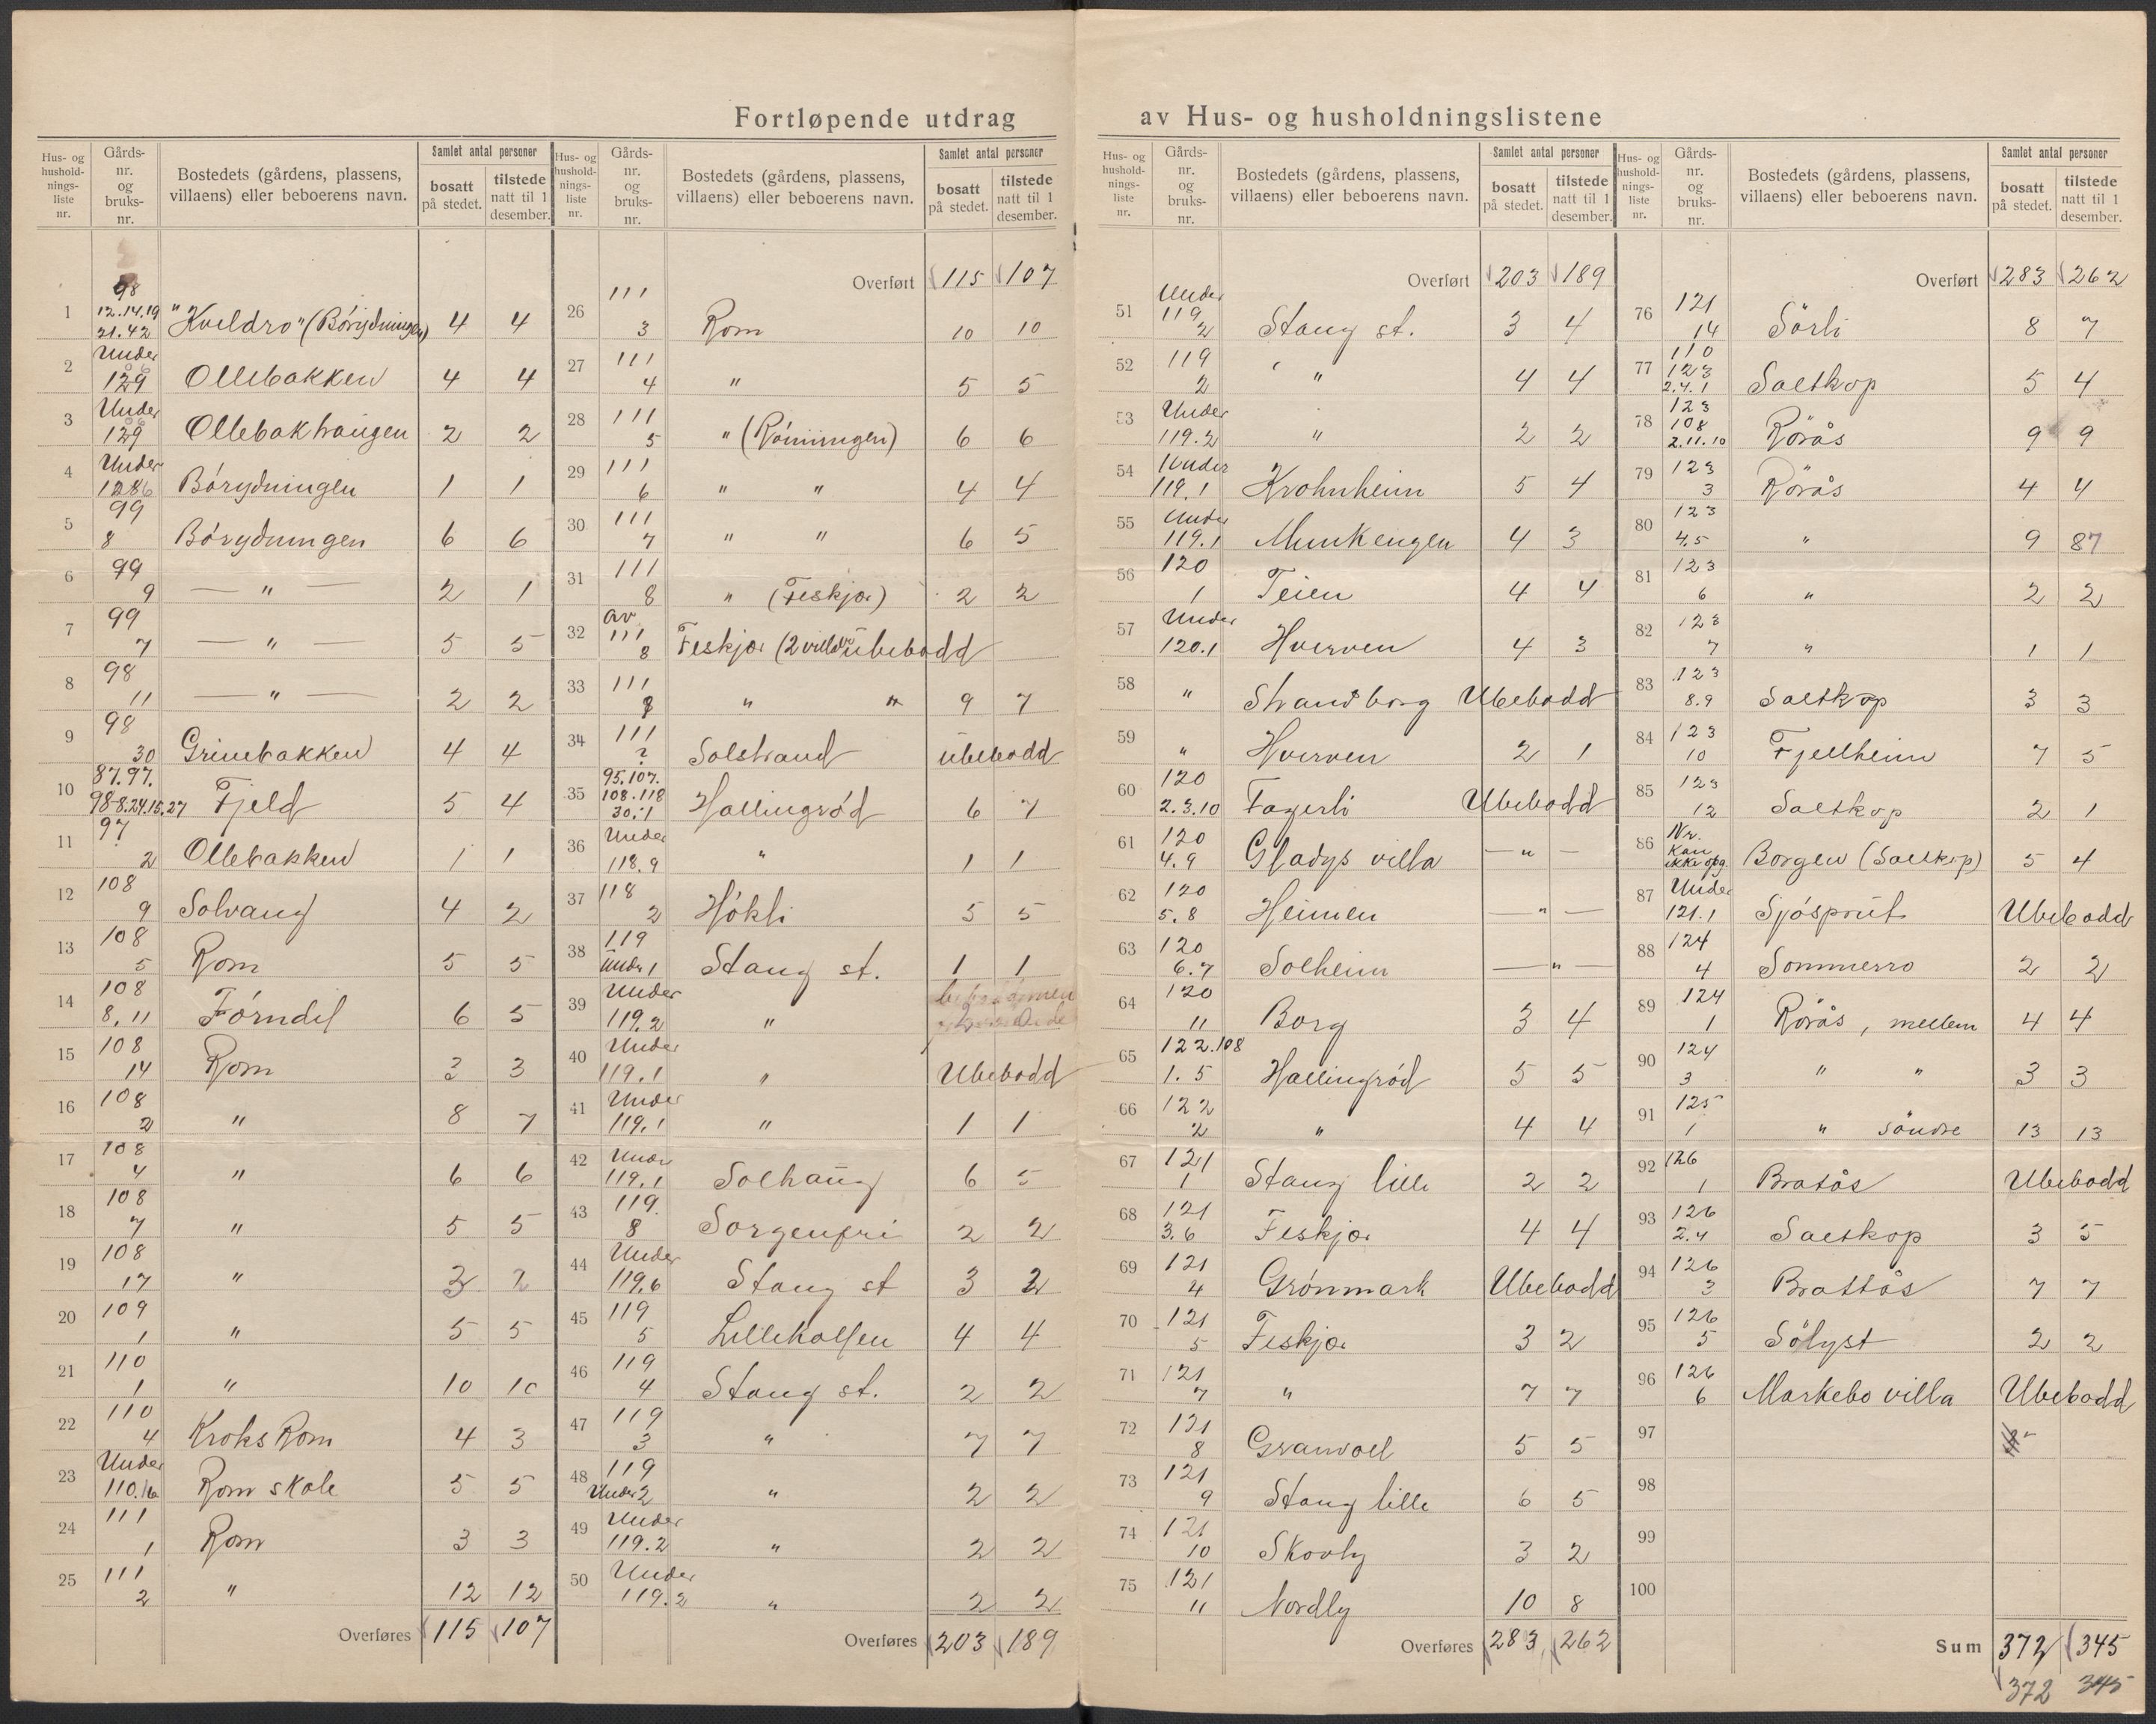 Fortløpende utdrag av Hus- og husholdningslistene
Hus- og husholdnings-liste nr. | Gårds-nr. og bruks-nr. | Bostedets (gårdens, plassens, villaens) eller beboerens navn. | Samlet antal personer | bosatt på stedet. | tilstede natt til 1 desember.
1 | 98 12.14.19 21.42 | "Kveldro" (Börydningen) | 4 | 4
2 | Under 129 | Ollebakken | 4 | 4
3 | Under 129 | Ollebakhaugen | 2 | 2
4 | Under 1286 | Börydningen | 1 | 1
5 | 99 8 | Börydningen | 6 | 6
6 | 99 9 | — " — | 2 | 1
7 | 99 7 | — " — | 5 | 5
8 | 98 11 | — " — | 2 | 2
9 | 98 30 | Grinebakken | 4 | 4
10 | 87.97. 98-8.24.15.27 | Fjeld | 5 | 4
11 | 97 2 | Ollebakken | 1 | 1
12 | 108 9 | Solvang | 4 | 2
13 | 108 5 | Rom | 5 | 5
14 | 108 8, 11 | Förndel | 6 | 5
15 | 108 14 | Rom | 3 | 3
16 | 108 2 | " | 8 | 7
17 | 108 4 | " | 6 | 6
18 | 108 7 | " | 5 | 5
19 | 108 17 | " | 3 | 2
20 | 109 1 | " | 5 | 5
21 | 110 1 | " | 10 | 10
22 | 110 4 | Kroks Rom | 4 | 3
23 | Under 110. | Rom skole | 5 | 5
24 | 111 1 | Rom | 3 | 3
25 | 111 2 | " | 12 | 12
Overføres 115 107
Hus- og husholdnings-liste nr. | Gårds-nr. og bruks-nr. | Bostedets (gårdens, plassens, villaens) eller beboerens navn. | Samlet antal personer | bosatt på stedet. | tilstede natt til 1 desember.
Overført 115 107
26 | 111 3 | Rom | 10 | 10
27 | 111 4 | " | 5 | 5
28 | 111 5 | " (Röningen) | 6 | 6
29 | 111 6 | " " | 4 | 4
30 | 111 7 | " " | 6 | 5
31 | 111 8 | " (Feskjær) | 2 | 2
32 | av 111 8 | Feskjær (2 villaer) ubebodd
33 | 111 8 | " " | 9 | 7
34 | 111 ? | Solstrand | ubebodd
35 | 95.107. 108.118 30.1 | Hallingröd | 6 | 7
36 | Under 118.9 | " | 1 | 1
37 | 118 2 | Hökli | 5 | 5
38 | 119 Under 1 | Stang st. | 1 | 1
39 | Under 119.2 | "
40 | Under 119.1 | " | Ubebodd
41 | Under 119.1 | " | 1 | 1
42 | Under 119.1 | Solhaug | 6 | 5
43 | 119. 8 | Sorgenfri | 2 | 2
44 | Under 119.6 | Stang st | 3 | 2
45 | 119 5 | Lillekolsen | 4 | 4
46 | 119 4 | Stang st. | 2 | 2
47 | 119 3 | " | 7 | 7
48 | 119 Under 2 | " | 2 | 2
49 | Under 119.2 | " | 2 | 2
50 | Under 119.2 | " | 2 | 2
Overføres 203 189
Hus- og husholdnings-liste nr. | Gårds-nr. og bruks-nr. | Bostedets (gårdens, plassens, villaens) eller beboerens navn. | Samlet antal personer | bosatt på stedet. | tilstede natt til 1 desember.
Overført 203 189
51 | Under 119 2 | Stang st. | 3 | 4
52 | 119 2 | " | 4 | 4
53 | Under 119.2 | " | 2 | 2
54 | Under 119.1 | Krohnheim | 5 | 4
55 | Under 119.1 | Munkengen | 4 | 3
56 | 120 1 | Teien | 4 | 4
57 | Under 120.1 | Hverven | 4 | 3
58 | " | Strandborg | Ubebodd
59 | " | Hverven | 2 | 1
60 | 120 2.3.10 | Fagerli | Ubebodd
61 | 120 4.9 | Gladys villa | — " —
62 | 120 5.8 | Heimen | — " —
63 | 120 6.7 | Solheim | — " —
64 | 120 11 | Borg | 3 | 4
65 | 122.108 1. 5 | Hallingröd | 5 | 5
66 | 122 2 | " | 4 | 4
67 | 121 1 | Stang lille | 2 | 2
68 | 121 3.6 | Feskjær | 4 | 4
69 | 121 4 | Grönmark | Ubebodd
70 | 121 5 | Feskjær | 3 | 2
71 | 121 7 | " | 7 | 7
72 | 121 8 | Granvoll | 5 | 5
73 | 121 9 | Stang lille | 6 | 5
74 | 121 10 | Skovly | 3 | 2
75 | 121 11 | Nordly | 10 | 8
Overføres 283 262
Hus- og husholdnings-liste nr. | Gårds-nr. og bruks-nr. | Bostedets (gårdens, plassens, villaens) eller beboerens navn. | Samlet antal personer | bosatt på stedet. | tilstede natt til 1 desember.
Overført 283 262
76 | 121 14 | Sörli | 8 | 7
77 | 110 123 2.4.1 | Saltkop | 5 | 4
78 | 123 108 2.11.10 | Rörås | 9 | 9
79 | 123 3 | Rörås | 4 | 4
80 | 123 4.5 | " | 9 | 87
81 | 123 6 | " | 2 | 2
82 | 123 7 | " | 1 | 1
83 | 123 8.9 | Saltkop | 3 | 3
84 | 123 10 | Fjellheim | 7 | 5
85 | 123 12 | Saltkop | 2 | 1
86 | Nr. kan ikke opg. | Borgen (Saltkop) | 5 | 4
87 | Under 121.1 | Sjösprut | Ubebodd
88 | 124 4 | Sommerro | 2 | 2
89 | 124 1 | Rörås, mellem | 4 | 4
90 | 124 3 | " " | 3 | 3
91 | 125 1 | " söndre | 13 | 13
92 | 126 1 | Bratås | Ubebodd
93 | 126 2.4 | Saltkop | 3 | 5
94 | 126 3 | Brattås | 7 | 7
95 | 126 5 | Sölyst | 2 | 2
96 | 126 6 | Markebo villa | Ubebodd
97
98
99
100
Sum 372 345
372 345